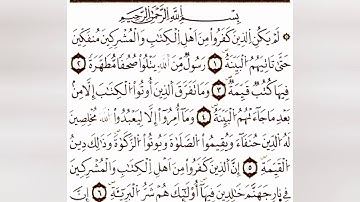 بِسْمِ اللَّهِ الرَّحْمَٰنِ الرَّحِيمِ
لَمْ يَكُنِ الَّذِينَ كَفَرُوا مِنْ أَهْلِ الْكِتَابِ وَالْمُشْرِكِينَ مُنْفَكِّينَ
حَتَّىٰ تَأْتِيَهُمُ الْبَيِّنَةُ ﴿١﴾ رَسُولٌ مِّنَ اللَّهِ يَتْلُوا صُحُفًا مُّطَهَّرَةً ﴿٢﴾
فِيهَا كُتُبٌ قَيِّمَةٌ ﴿٣﴾ وَمَا تَفَرَّقَ الَّذِينَ أُوتُوا الْكِتَابَ إِلَّا مِنْ
بَعْدِ مَا جَاءَتْهُمُ الْبَيِّنَةُ ﴿٤﴾ وَمَا أُمِرُوا إِلَّا لِيَعْبُدُوا اللَّهَ مُخْلِصِينَ
لَهُ الدِّينَ حُنَفَاءَ وَيُقِيمُوا الصَّلَوٰةَ وَيُؤْتُوا الزَّكَوٰةَ وَذَٰلِكَ دِينُ
الْقَيِّمَةِ ﴿٥﴾ إِنَّ الَّذِينَ كَفَرُوا مِنْ أَهْلِ الْكِتَابِ وَالْمُشْرِكِينَ
فِي نَارِ جَهَنَّمَ خَالِدِينَ فِيهَا أُولَٰئِكَ هُمْ شَرُّ الْبَرِيَّةِ ﴿٦﴾ إِنَّ